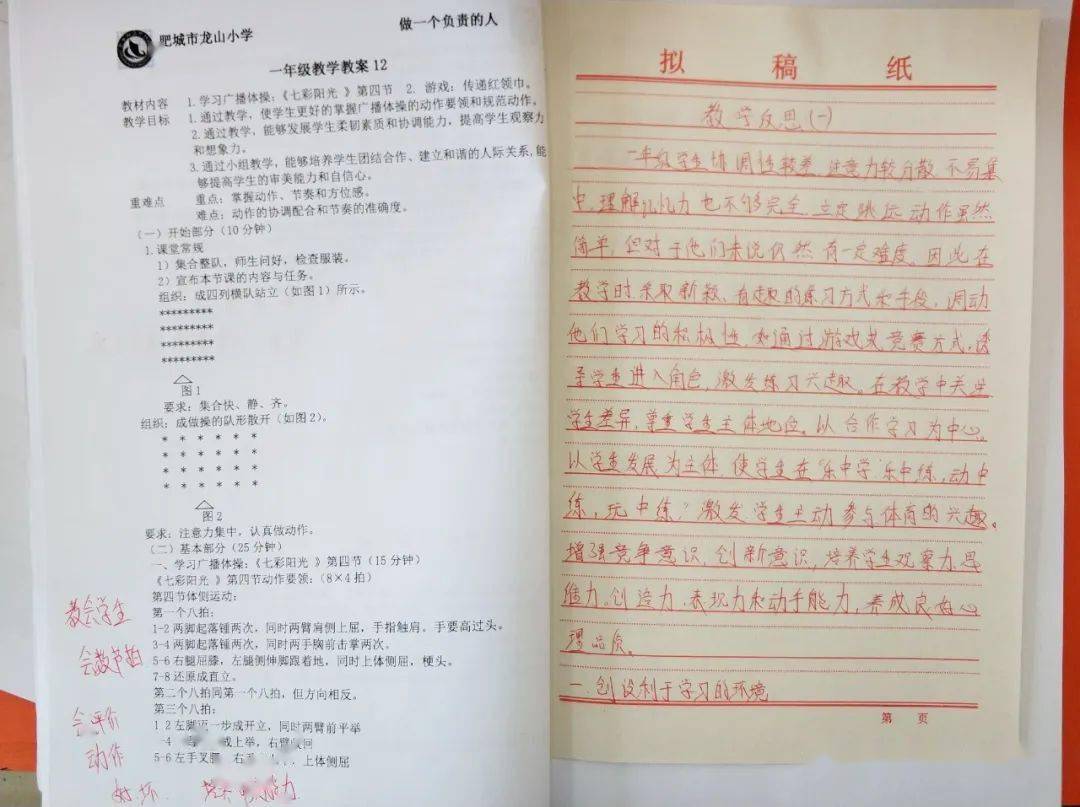 肥城市龙山小学
做一个负责的人
一年级教学教案 12
教材内容 1.学习广播体操:《七彩阳光 》第四节 2. 游戏:传递红领巾。
教学目标 1.通过教学,使学生更好的掌握广播体操的动作要领和规范动作。
2.通过教学,能够发展学生柔韧素质和协调能力,提高学生观察力
和想象力。
3.通过小组教学,能够培养学生团结合作、建立和谐的人际关系,能
够提高学生的审美能力和自信心。
重难点 重点:掌握动作、节奏和方位感。
难点:动作的协调配合和节奏的准确度。
(一)开始部分(10 分钟)
1.课堂常规
1)集合整队,师生问好,检查服装。
2)宣布本节课的内容与任务。
组织:成四列横队站立(如图 1)所示。
*********
*********
*********
*********
图 1
要求:集合快、静、齐。
组织:成做操的队形散开(如图 2)。
* * * * * *
* * * * * *
* * * * * *
* * * * * *
图 2
要求:注意力集中,认真做动作。
(二)基本部分(25 分钟)
一、学习广播体操:《七彩阳光 》第四节(15 分钟)
《七彩阳光 》第四节动作要领:(8×4 拍)
第四节体侧运动:
第一个八拍:
1-2 两脚起落锤两次,同时两臂肩侧上屈,手指触肩。手要高过头。
3-4 两脚起落锤两次,同时两手胸前击掌两次。
5-6 右腿屈膝,左腿侧伸脚跟着地,同时上体侧屈,梗头。
7-8 还原成直立。
第二个八拍同第一个八拍,但方向相反。
第三个八拍:
1-2 左脚迈一步成开立,同时两臂前平举
-4 成上举,右臂 回
5-6 左手叉腰 右 上体侧屈
教会学生
会数节拍
会评价
动作
好坏
拟稿纸
教学反思(一)
一年级学生协调性较差,注意力较分散,不易集
中,理解记忆力也不够完全,立定跳远动作虽然
简单,但对于他们来说仍然有一定难度。因此在
教学时采取新颖、有趣的练习方式和手段,调动
他们学习的积极性,如通过游戏或竞赛方式,诱
导学生进入角色,激发练习兴趣。在教学中关注
学生差异,尊重学生主体地位。以合作学习为中心。
以学生发展为主体,使学生在“乐中学,乐中练,动中
练,玩中练”激发学生主动参与体育的兴趣。
增强竞争意识,创新意识,培养学生观察力,思
维力。创造力,表现力和动手能力,养成良好心
理品质。
一.创设利于学习的环境
第 页